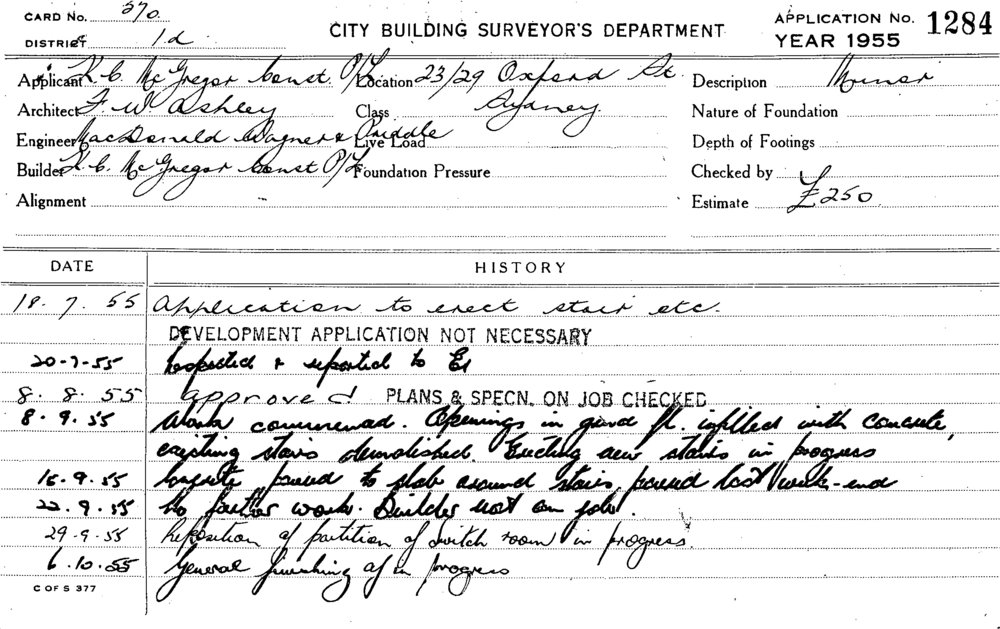 CARD No. 270.
DISTRICT 1d
CITY BUILDING SURVEYOR'S DEPARTMENT
APPLICATION No. 1284
YEAR 1955
Applicant K. C. McGregor Const. P/L
Location 23/29 Oxford St.
Description Minor
Architect F. W. Ashley
Class Sydney.
Nature of Foundation
Engineer MacDonald Wagner & Priddle
Live Load
Depth of Footings
Builder K. C. McGregor Const P/L
Foundation Pressure
Checked by
Alignment
Estimate £250.
DATE HISTORY
18. 7. 55 Application to erect stair etc.
DEVELOPMENT APPLICATION NOT NECESSARY
20-7-55 Inspected & reported to
8. 8. 55 approved PLANS & SPECN. ON JOB CHECKED
8. 9. 55 Work commenced. Openings in grnd fl. infilled with concrete,
existing stairs demolished. Erecting new stairs in progress
.9.55 Concrete poured to slab around stairs, poured last week-end
22.9.55 No further work. Builder not on job.
29-9-55 Reposition of partition of switch room in progress.
6.10.55 General finishing in progress
C OF S 377